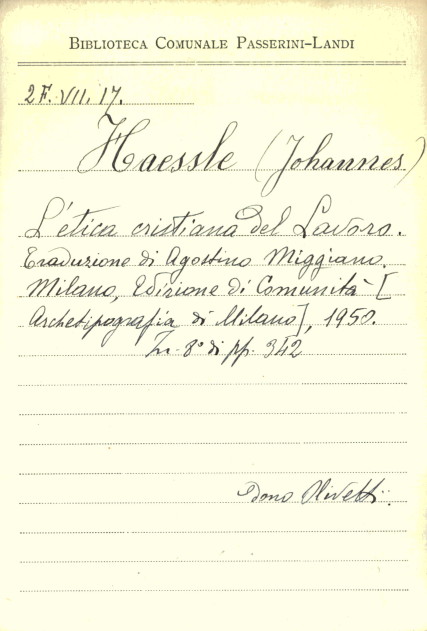 BIBLIOTECA COMUNALE PASSERINI-LANDI
2F. VII. 17.
Haessle (Johannes)
L'etica cristiana del Lavoro.
Traduzione di Agostino Miggiano.
Milano, Edizione di Comunità [
Archetipografia di Milano], 1950.
In 8° di pp. 342
Dono Olivetti.